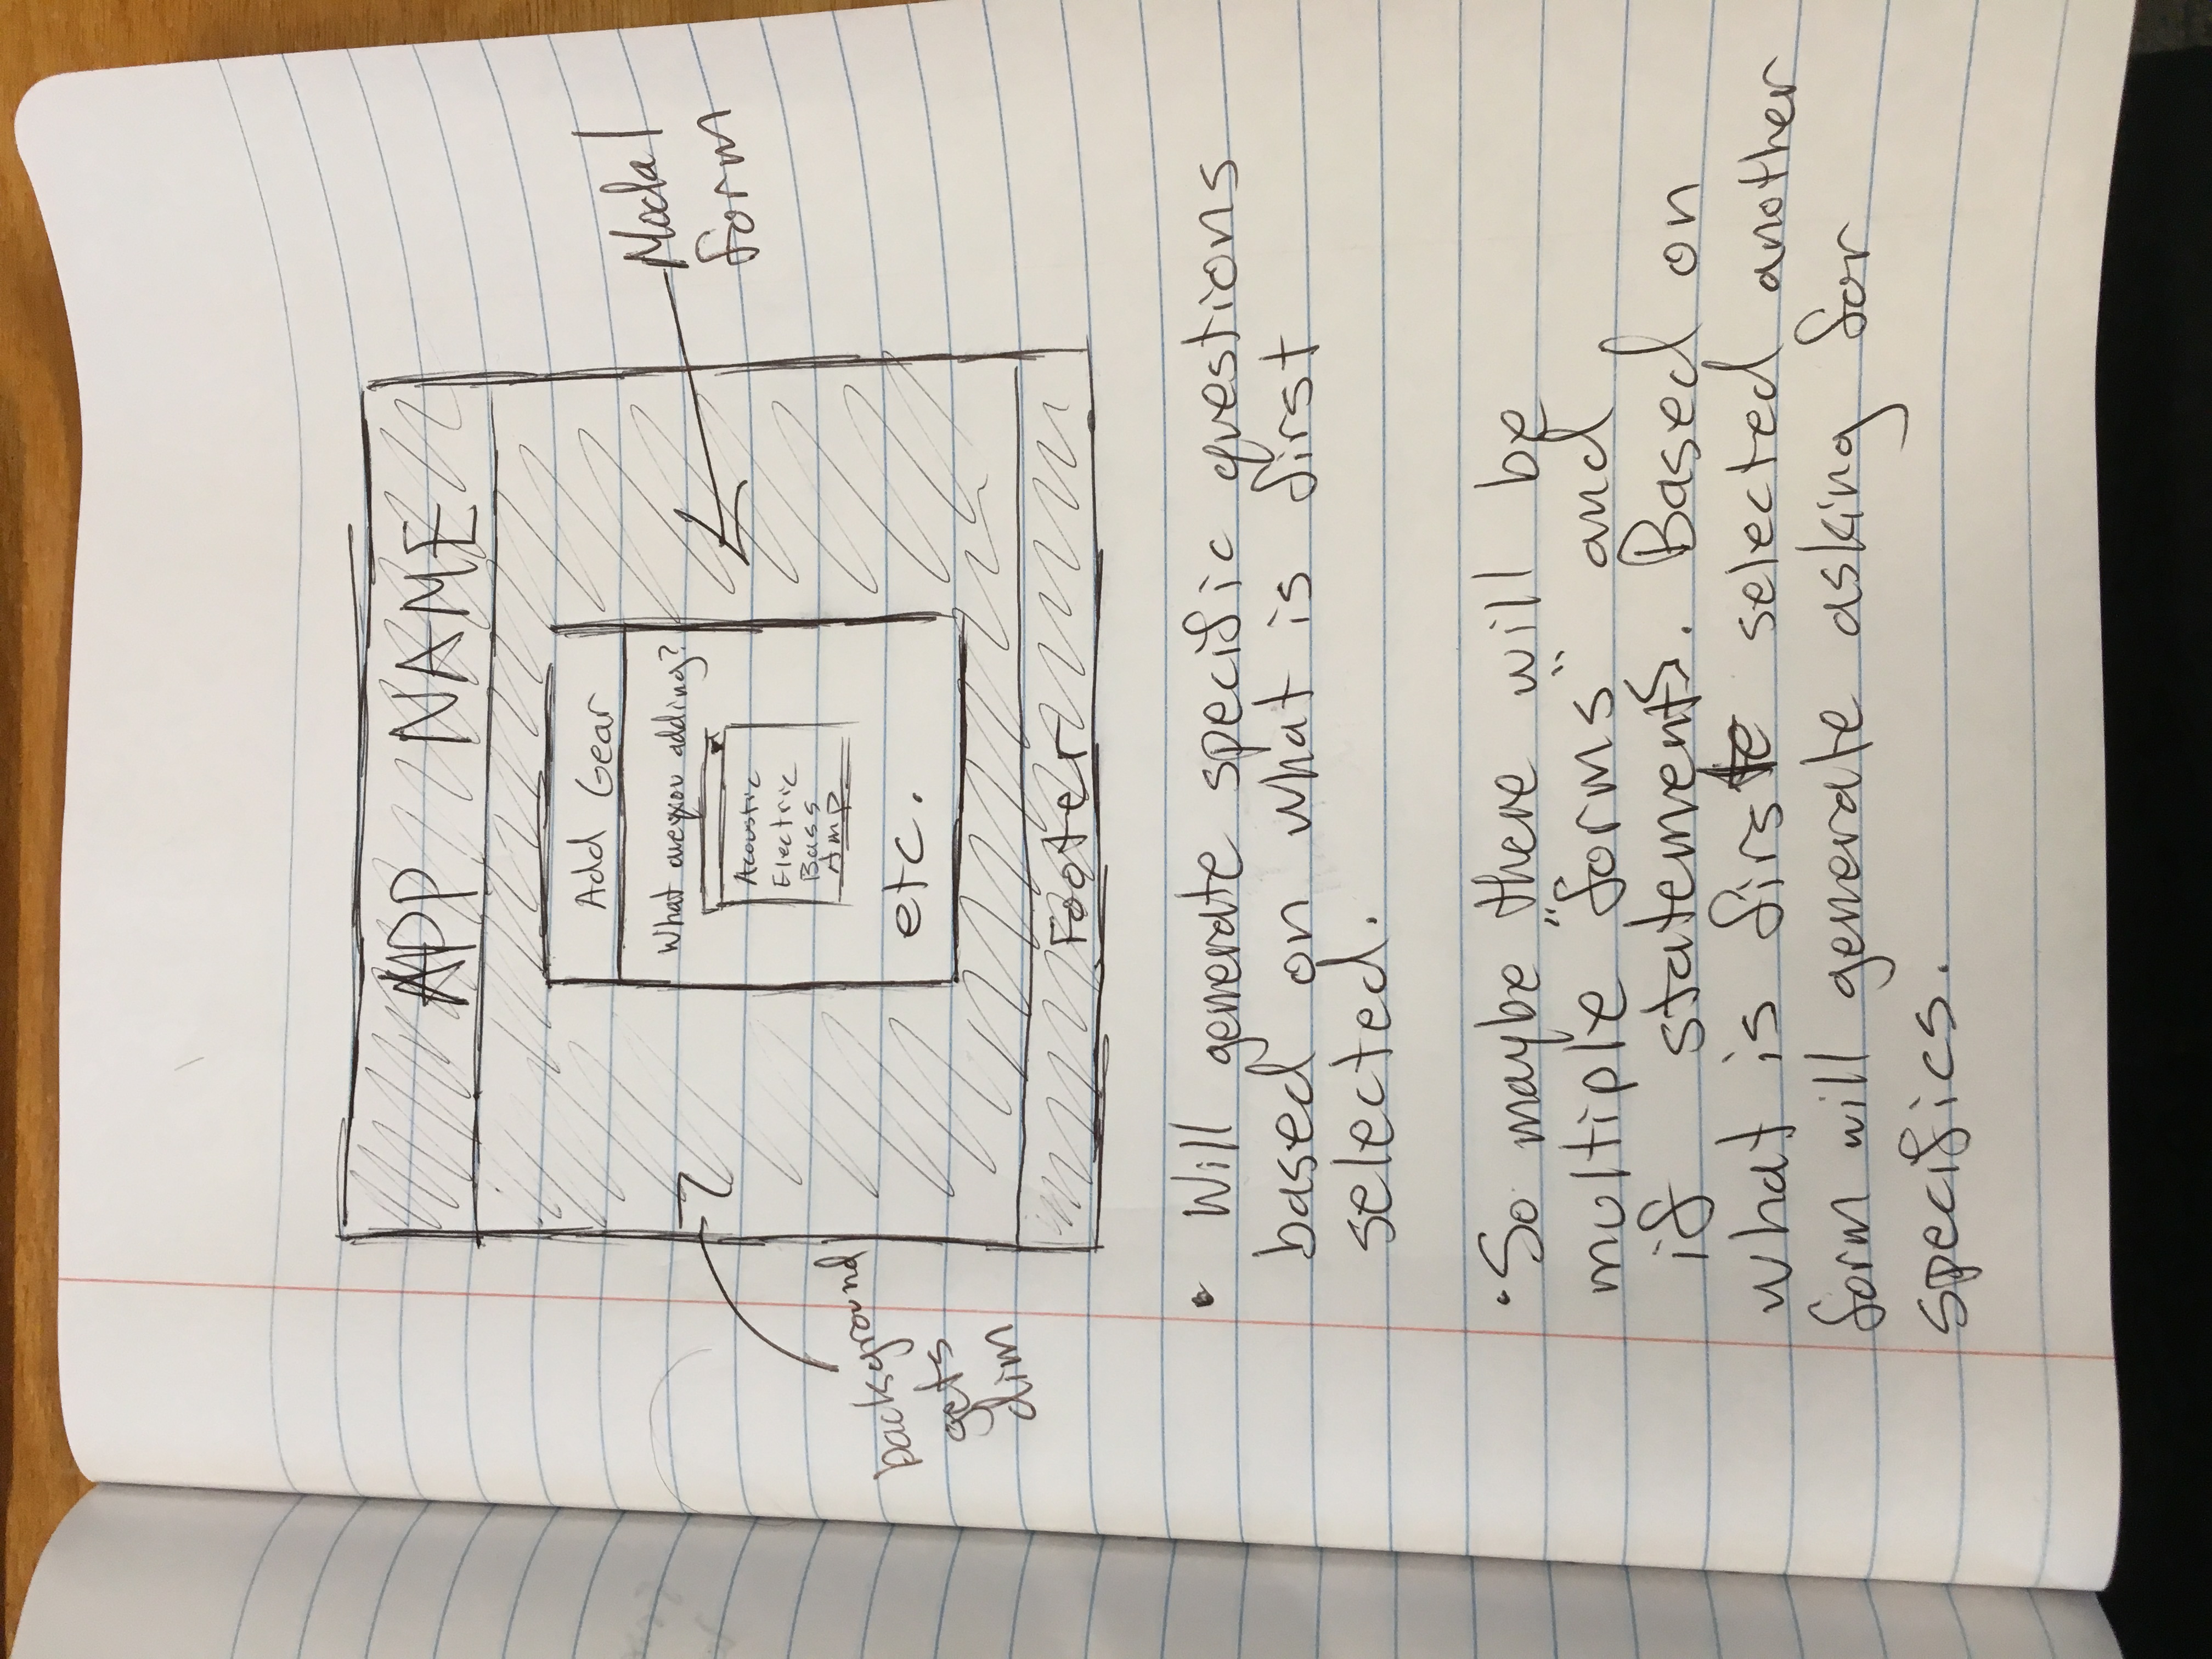 APP NAME
Add Gear
What are you adding?
Acoustic
Electric
Bass
Amp
etc.
Modal
form
background
gets
dim
Footer
• Will generate specific questions
based on what is first
selected.
• So maybe there will be
multiple "forms" and
if statements. Based on
what is first selected another
form will generate asking for
specifics.